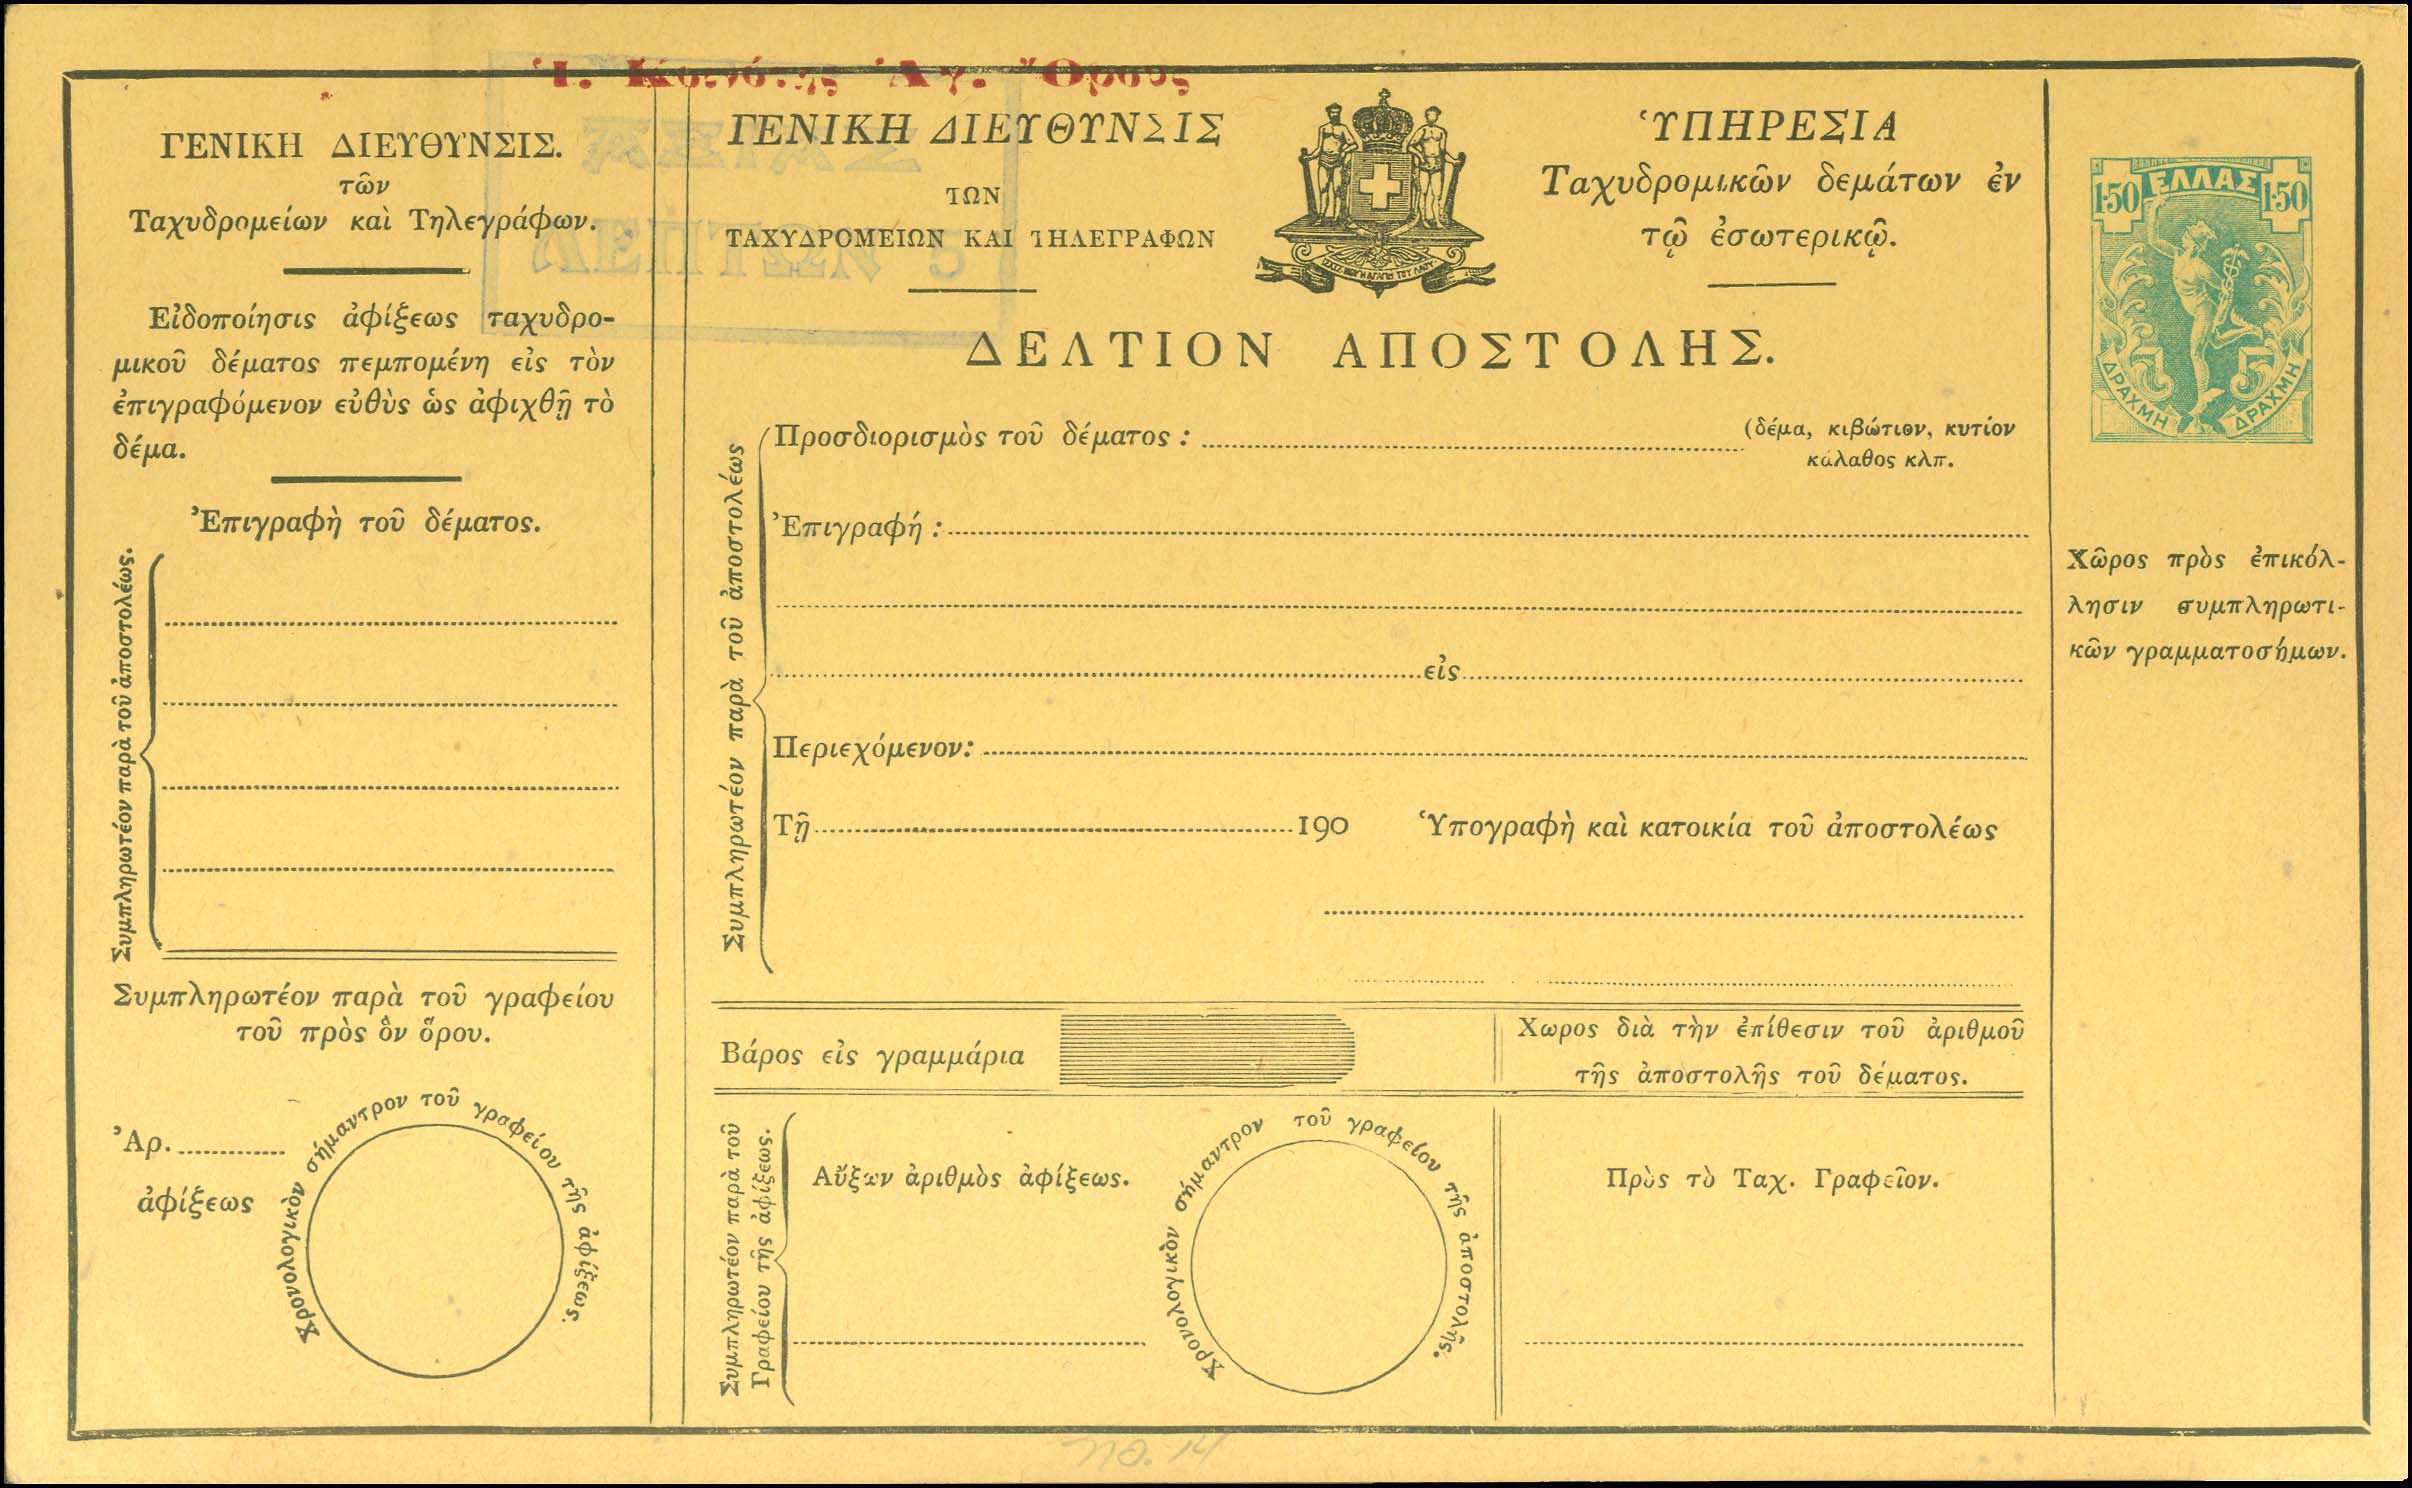 Ἱ. Κοινότης Ἁγ. Ὄρους
ΓΕΝΙΚΗ ΔΙΕΥΘΥΝΣΙΣ.
τῶν
Ταχυδρομείων καὶ Τηλεγράφων.
Εἰδοποίησις ἀφίξεως ταχυδρο-
μικοῦ δέματος πεμπομένη εἰς τὸν
ἐπιγραφόμενον εὐθὺς ὡς ἀφιχθῇ τὸ
δέμα.
Ἐπιγραφὴ τοῦ δέματος.
Συμπληρωτέον παρὰ τοῦ ἀποστολέως.
Συμπληρωτέον παρὰ τοῦ γραφείου
τοῦ πρὸς ὃν ὅρου.
Ἀρ.
ἀφίξεως
Χρονολογικὸν σήμαντρον τοῦ γραφείου τῆς ἀφίξεως.
ΓΕΝΙΚΗ ΔΙΕΥΘΥΝΣΙΣ
ΤΩΝ
ΤΑΧΥΔΡΟΜΕΙΩΝ ΚΑΙ ΤΗΛΕΓΡΑΦΩΝ
ΙΣΧΥΣ ΜΟΥ Η ΑΓΑΠΗ ΤΟΥ ΛΑΟΥ
ὙΠΗΡΕΣΙΑ
Ταχυδρομικῶν δεμάτων ἐν
τῷ ἐσωτερικῷ.
ΔΕΛΤΙΟΝ ΑΠΟΣΤΟΛΗΣ.
Συμπληρωτέον παρὰ τοῦ ἀποστολέως
Προσδιορισμὸς τοῦ δέματος : (δέμα, κιβώτιον, κυτίον
κάλαθος κλπ.
Ἐπιγραφή :
εἰς
Περιεχόμενον:
Τῇ 190 Ὑπογραφὴ καὶ κατοικία τοῦ ἀποστολέως
Βάρος εἰς γραμμάρια
Χωρος διὰ τὴν ἐπίθεσιν τοῦ ἀριθμοῦ
τῆς ἀποστολῆς τοῦ δέματος.
Συμπληρωτέον παρὰ τοῦ
Γραφείου τῆς ἀφίξεως.
Αὔξων ἀριθμὸς ἀφίξεως.
Χρονολογικὸν σήμαντρον τοῦ γραφείου τῆς ἀποστολῆς.
Πρὸς τὸ Ταχ. Γραφεῖον.
1·50 ΕΛΛΑΣ 1·50
ΔΡΑΧΜΗ ΔΡΑΧΜΗ
Χῶρος πρὸς ἐπικόλ-
λησιν συμπληρωτι-
κῶν γραμματοσήμων.